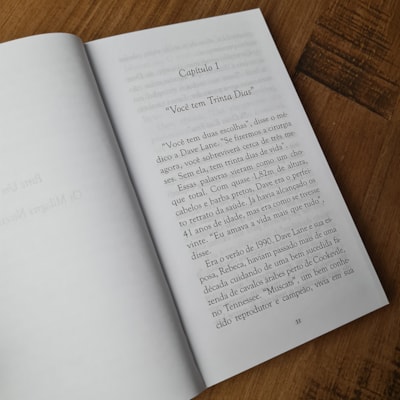 Capítulo 1
“Você tem Trinta Dias”
“Você tem duas escolhas”, disse o mé-
dico a Dave Lane. “Se fizermos a cirurgia
agora, você sobreviverá cerca de três me-
ses. Sem ela, tem trinta dias de vida”.
Essas palavras vieram como um cho-
que total. Com quase 1,82m de altura,
cabelos e barba pretos, Dave era o perfei-
to retrato da saúde. Já havia alcançado os
41 anos de idade, mas era como se tivesse
vinte. “Eu amava a vida mais que tudo”,
disse.
Era o verão de 1990. Dave Lane e sua es-
posa, Rebeca, haviam passado mais de uma
década cuidando de uma bem sucedida fa-
zenda de cavalos árabes perto de Cookevile,
no Tennessee. “Muscats”, um bem conhe-
cido reprodutor e campeão, vivia em sua